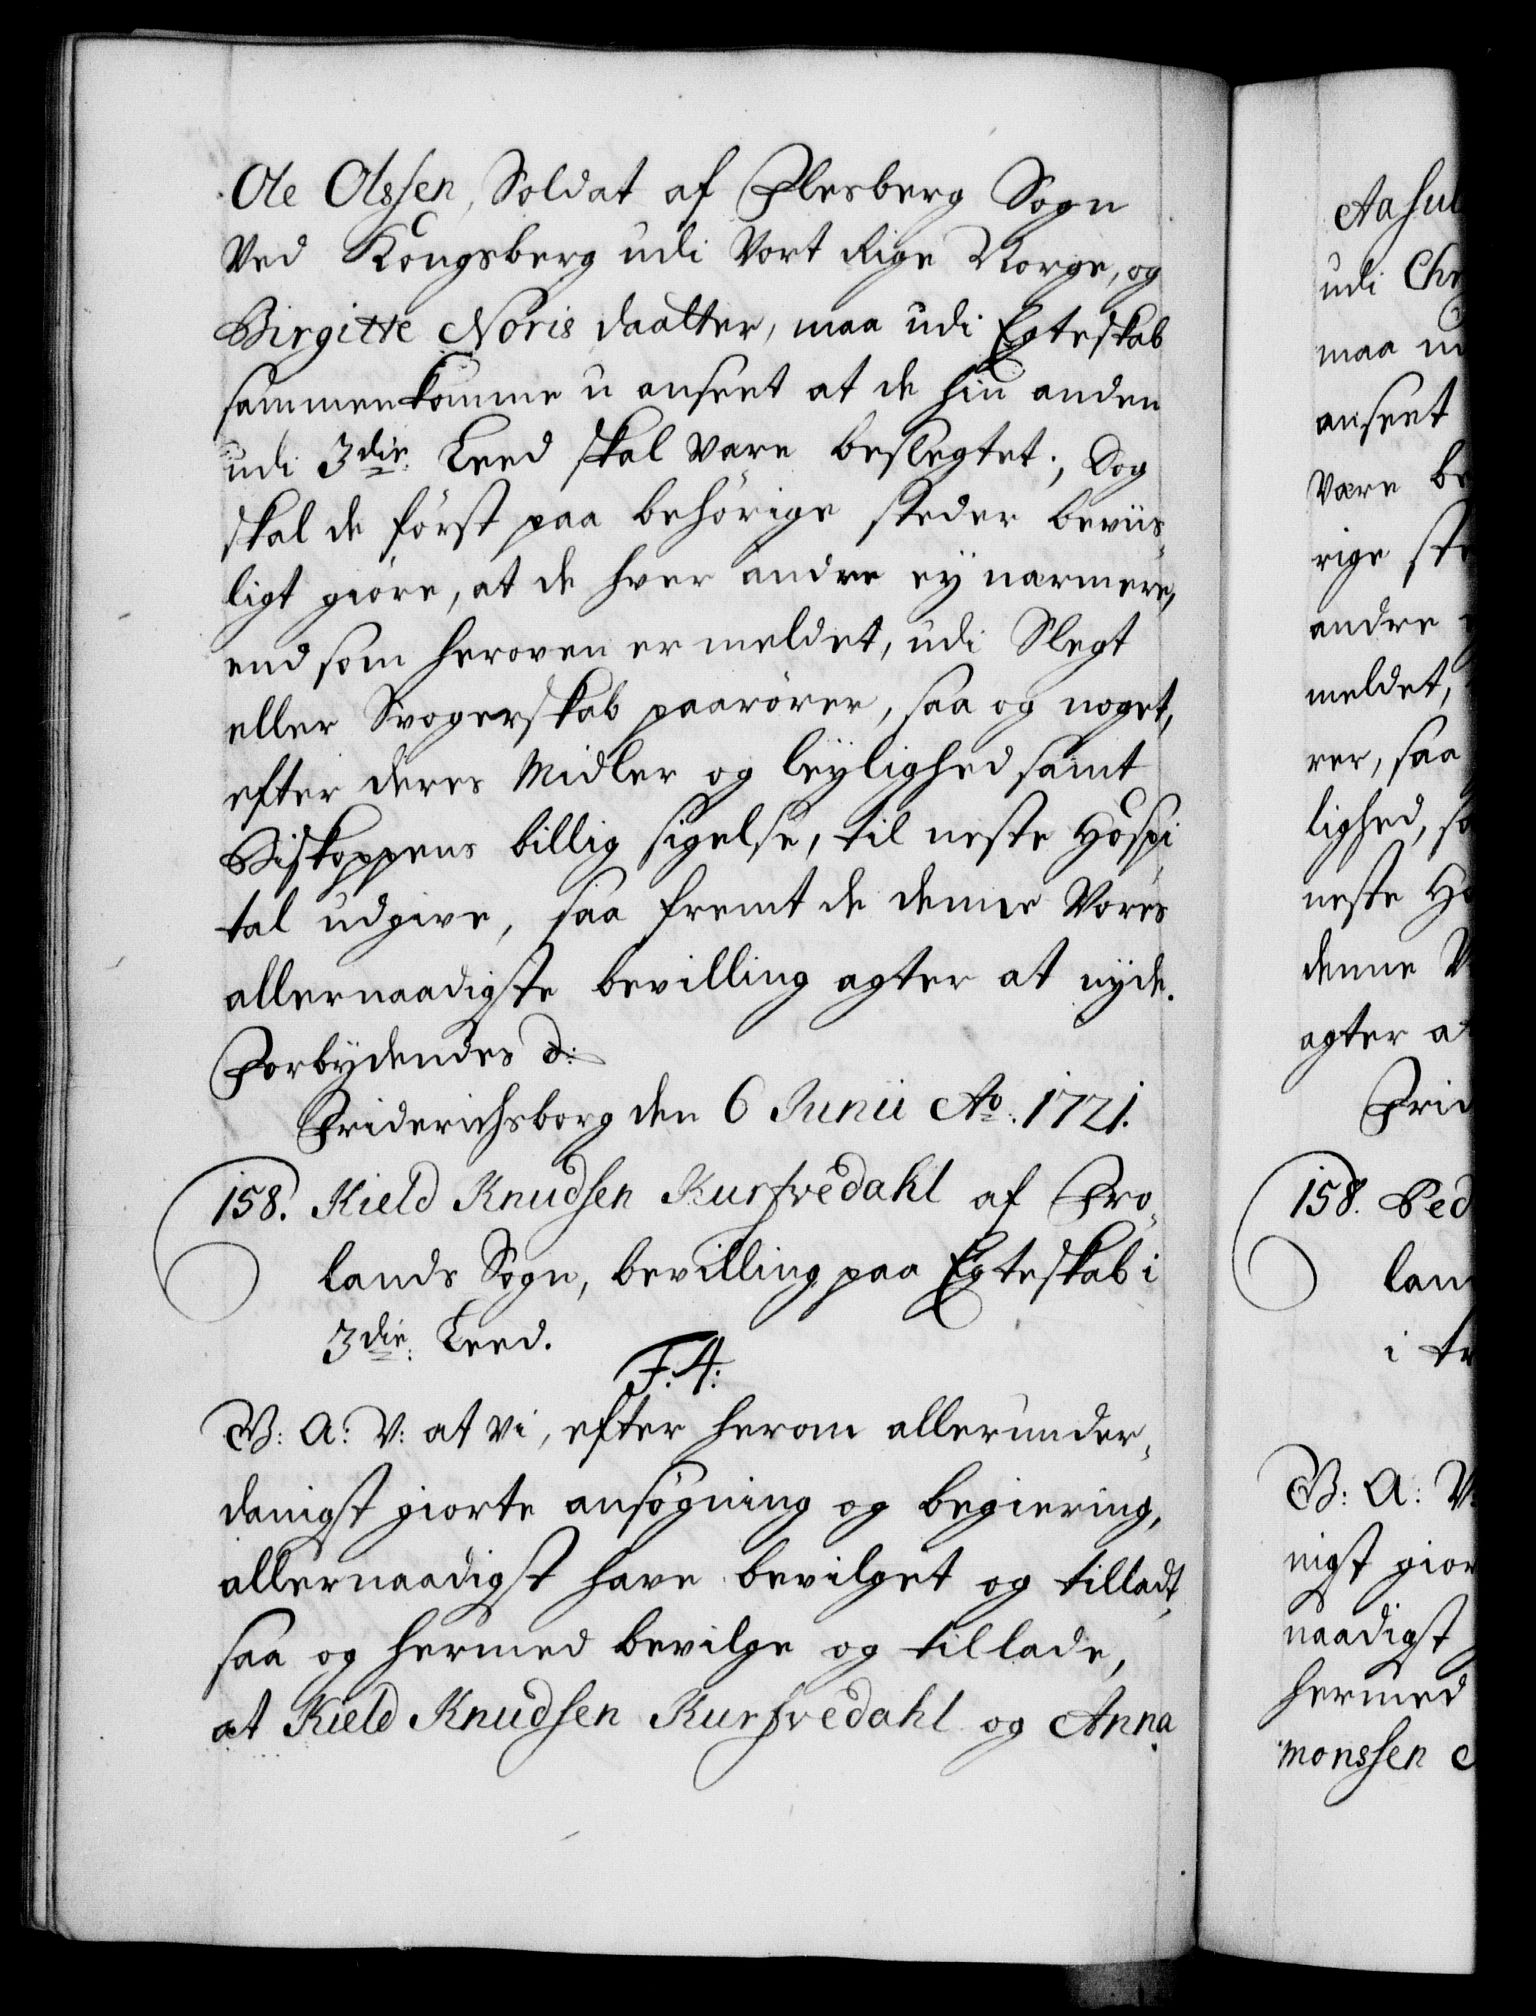 Ole Olssen, Soldat af Flesberg Sogn
ved Kongsberg udi Vort Rige Norge, og
Birgitte Noris daatter, maa udi Egteskab
sammenkomme u anseet at de hin anden
udi 3die Leed skal være beslegtet; Dog
skal de först paa behörige steder beviis-
ligt giöre, at de hver andre ey nærmere,
end som heroven er meldet, udi Slegt
eller Svogerskab paarörer, saa og noget,
efter deres Midler og leylighed samt
Biskoppens billig sigelse, til neste Hospi
tal udgive, saa fremt de denne Vores
allernaadigste bevilling agter at nyde.
Forbydendes &:
Friderichsborg den 6 Junii Ao. 1721.
158. Kield Knudsen Kurfvedahl af Fro-
lands Sogn, bevilling paa Egteskab i
3die Leed.
F. 4:
V: A: V: at Vi, efter herom allerunder-
danigst giorte ansögning og begiering,
allernaadigst have bevilget og tilladt,
saa og hermed bevilge og tillade,
at Kield Knudsen Kurfvedahl og Anna
udi
maa
anseet
være
rige
andre
meldet,
rer, saa
lighed,
neste
denne
agter
158.
i
V: A: V:
nigst
naadigst
hermed
monssen